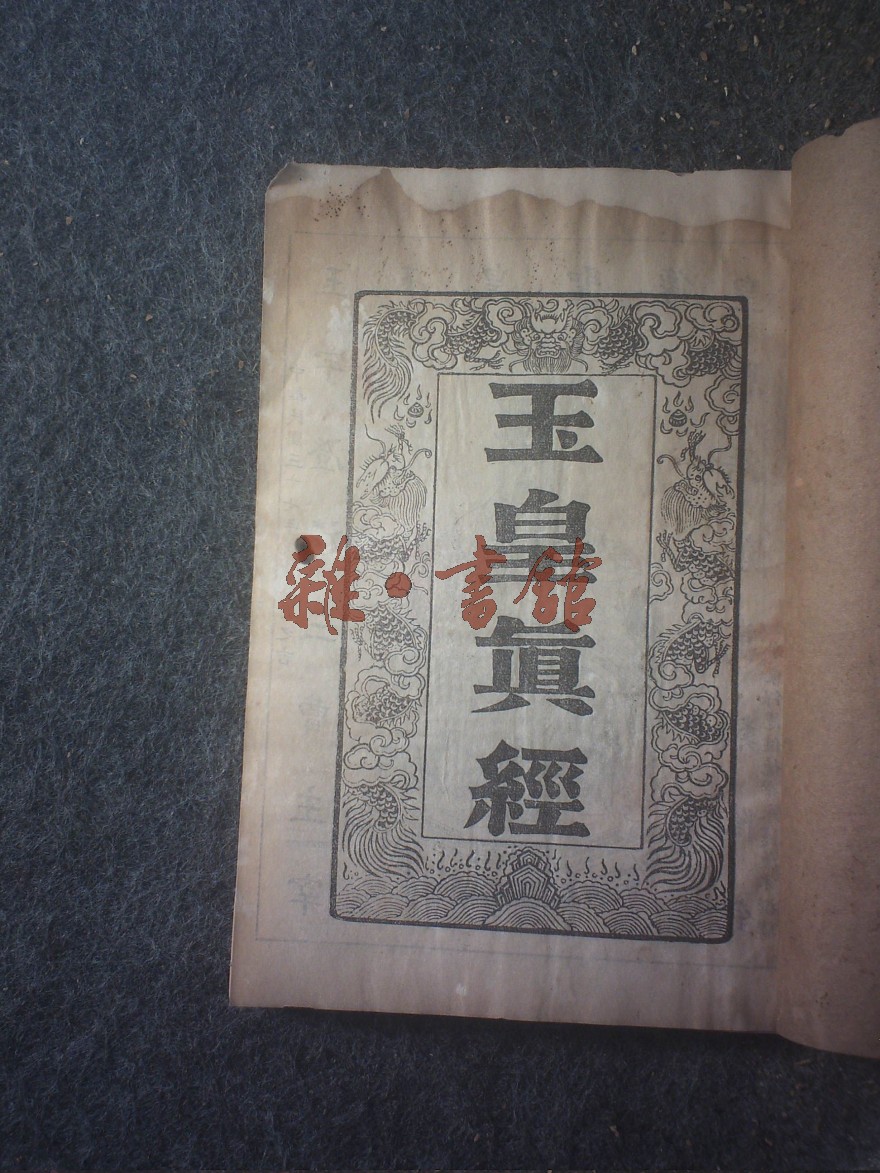 玉皇眞經
雜·書館